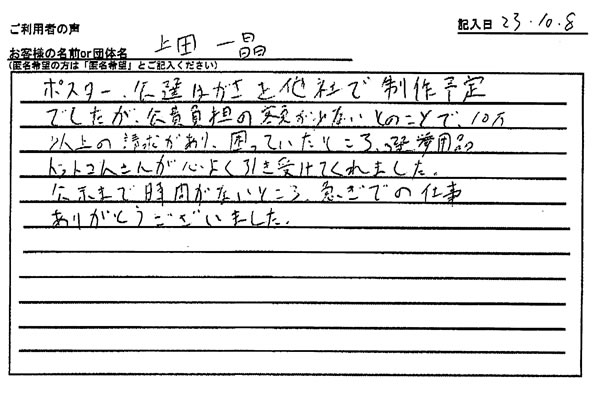 ご利用者の声
記入日 23.10.8
お客様の名前or団体名 上田 一晶
(匿名希望の方は「匿名希望」とご記入ください)
ポスター、公選はがきを他社で制作予定
でしたが、公費負担の額が少ないとのことで、10万
以上の請求があり、困っていたところ、選挙用品
ドットコムさんが心よく引き受けてくれました。
公示まで時間がないところ、急ぎでの仕事
ありがとうございました。